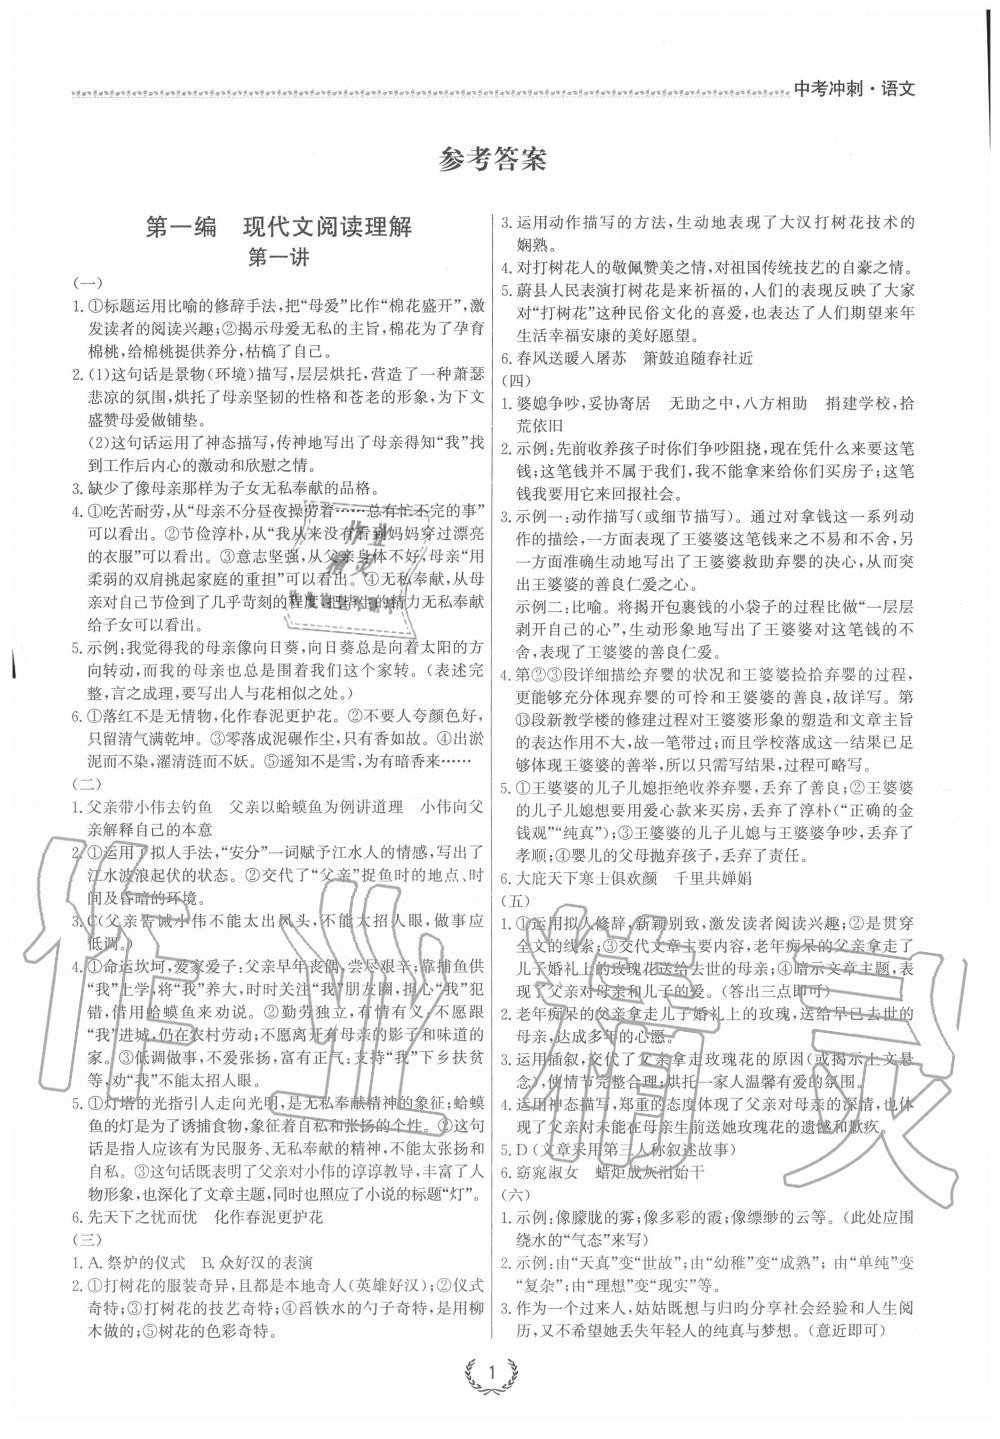 中考冲刺·语文
参考答案
第一编　现代文阅读理解
第一讲
(一)
1.①标题运用比喻的修辞手法,把“母爱”比作“棉花盛开”,激
发读者的阅读兴趣;②揭示母爱无私的主旨,棉花为了孕育
棉桃,给棉桃提供养分,枯槁了自己。
2.(1)这句话是景物(环境)描写,层层烘托,营造了一种萧瑟
悲凉的氛围,烘托了母亲坚韧的性格和苍老的形象,为下文
盛赞母爱做铺垫。
(2)这句话运用了神态描写,传神地写出了母亲得知“我”找
到工作后内心的激动和欣慰之情。
3.缺少了像母亲那样为子女无私奉献的品格。
4.①吃苦耐劳,从“母亲不分昼夜操劳着……总有忙不完的事”
可以看出。②节俭淳朴,从“我从来没有看到妈妈穿过漂亮
的衣服”可以看出。③意志坚强,从父亲身体不好,母亲“用
柔弱的双肩挑起家庭的重担”可以看出。④无私奉献,从母
亲对自己节俭到了几乎苛刻的程度,把毕生的精力无私奉献
给子女可以看出。
5.示例:我觉得我的母亲像向日葵,向日葵总是向着太阳的方
向转动,而我的母亲也总是围着我们这个家转。(表述完
整,言之成理,要写出人与花相似之处。)
6.①落红不是无情物,化作春泥更护花。②不要人夸颜色好,
只留清气满乾坤。③零落成泥碾作尘,只有香如故。④出淤
泥而不染,濯清涟而不妖。⑤遥知不是雪,为有暗香来……
(二)
1.父亲带小伟去钓鱼　父亲以蛤蟆鱼为例讲道理　小伟向父
亲解释自己的本意
2.①运用了拟人手法,“安分”一词赋予江水人的情感,写出了
江水波浪起伏的状态。②交代了“父亲”捉鱼时的地点、时
间及昏暗的环境。
3.C(父亲告诫小伟不能太出风头,不能太招人眼,做事应
低调。)
4.①命运坎坷,爱家爱子:父亲早年丧偶,尝尽艰辛;靠捕鱼供
“我”上学,将“我”养大,时时关注“我”朋友圈,担心“我”犯
错,借用蛤蟆鱼来劝说。②勤劳独立,有情有义:不愿跟
“我”进城,仍在农村劳动;不愿离开有母亲的影子和味道的
家。③低调做事,不爱张扬,富有正气:支持“我”下乡扶贫
等,劝“我”不能太招人眼。
5.①灯塔的光指引人走向光明,是无私奉献精神的象征;蛤蟆
鱼的灯是为了诱捕食物,象征着自私和张扬的个性。②这句
话是指人应该有为民服务、无私奉献的精神,不能太张扬和
自私。③这句话既表明了父亲对小伟的谆谆教导,丰富了人
物形象,也深化了文章主题,同时也照应了小说的标题“灯”。
6.先天下之忧而忧　化作春泥更护花
(三)
1.A.祭炉的仪式　B.众好汉的表演
2.①打树花的服装奇异,且都是本地奇人(英雄好汉);②仪式
奇特;③打树花的技艺奇特;④舀铁水的勺子奇特,是用柳
木做的;⑤树花的色彩奇特。
3.运用动作描写的方法,生动地表现了大汉打树花技术的
娴熟。
4.对打树花人的敬佩赞美之情,对祖国传统技艺的自豪之情。
5.蔚县人民表演打树花是来祈福的,人们的表现反映了大家
对“打树花”这种民俗文化的喜爱,也表达了人们期望来年
生活幸福安康的美好愿望。
6.春风送暖入屠苏　箫鼓追随春社近
(四)
1.婆媳争吵,妥协寄居　无助之中,八方相助　捐建学校,拾
荒依旧
2.示例:先前收养孩子时你们争吵阻挠,现在凭什么来要这笔
钱;这笔钱并不属于我们,我不能拿来给你们买房子;这笔
钱我要用它来回报社会。
3.示例一:动作描写(或细节描写)。通过对拿钱这一系列动
作的描绘,一方面表现了王婆婆这笔钱来之不易和不舍,另
一方面准确生动地写出了王婆婆救助弃婴的决心,从而突
出王婆婆的善良仁爱之心。
示例二:比喻。将揭开包裹钱的小袋子的过程比做“一层层
剥开自己的心”,生动形象地写出了王婆婆对这笔钱的不
舍,表现了王婆婆的善良仁爱。
4.第②③段详细描绘弃婴的状况和王婆婆捡拾弃婴的过程,
更能够充分体现弃婴的可怜和王婆婆的善良,故详写。第
⑬段新教学楼的修建过程对王婆婆形象的塑造和文章主旨
的表达作用不大,故一笔带过;而且学校落成这一结果已足
够体现王婆婆的善举,所以只写结果,不写过程,可略写。
5.①王婆婆的儿子儿媳拒绝收养弃婴,丢弃了善良;②王婆婆
的儿子儿媳想要婆婆救人款来买房,丢弃了淳朴(“正确的金
钱观”“纯真”);③王婆婆的儿子儿媳与王婆婆争吵,丢弃了
孝顺;④婴儿的父母抛弃孩子,丢弃了责任。
6.大庇天下寒士俱欢颜　千里共婵娟
(五)
1.①运用拟人修辞,新颖别致,激发读者阅读兴趣;②是贯穿
全文的线索;③交代文章主要内容,老年痴呆的父亲拿走了
儿子婚礼上的玫瑰花送给去世的母亲;④暗示文章主题,表
现了父亲对母亲和儿子的爱。(答出三点即可)
2.老年痴呆的父亲拿走儿子婚礼上的玫瑰,送给早已去世的
母亲,达成多年的心愿。
3.运用插叙,交代了父亲拿走玫瑰花的原因(或揭示上文悬
念),使情节完整合理;烘托一家人温馨有爱的氛围。
4.运用神态描写,郑重的态度体现了父亲对母亲的深情,也体
现了父亲对未能在母亲生前送她玫瑰花的遗憾和歉疚。
5.D(文章采用第三人称叙述故事)
6.窈窕淑女　蜡炬成灰泪始干
(六)
1.示例:像朦胧的雾;像多彩的霞;像缥缈的云等。(此处应围
绕水的“气态”来写)
2.示例:由“天真”变“世故”;由“幼稚”变“成熟”;由“单纯”变
“复杂”;由“理想”变“现实”等。
3.作为一个过来人,姑姑既想与归昀分享社会经验和人生阅
历,又不希望她丢失年轻人的纯真与梦想。(意近即可)
1
作业精灵